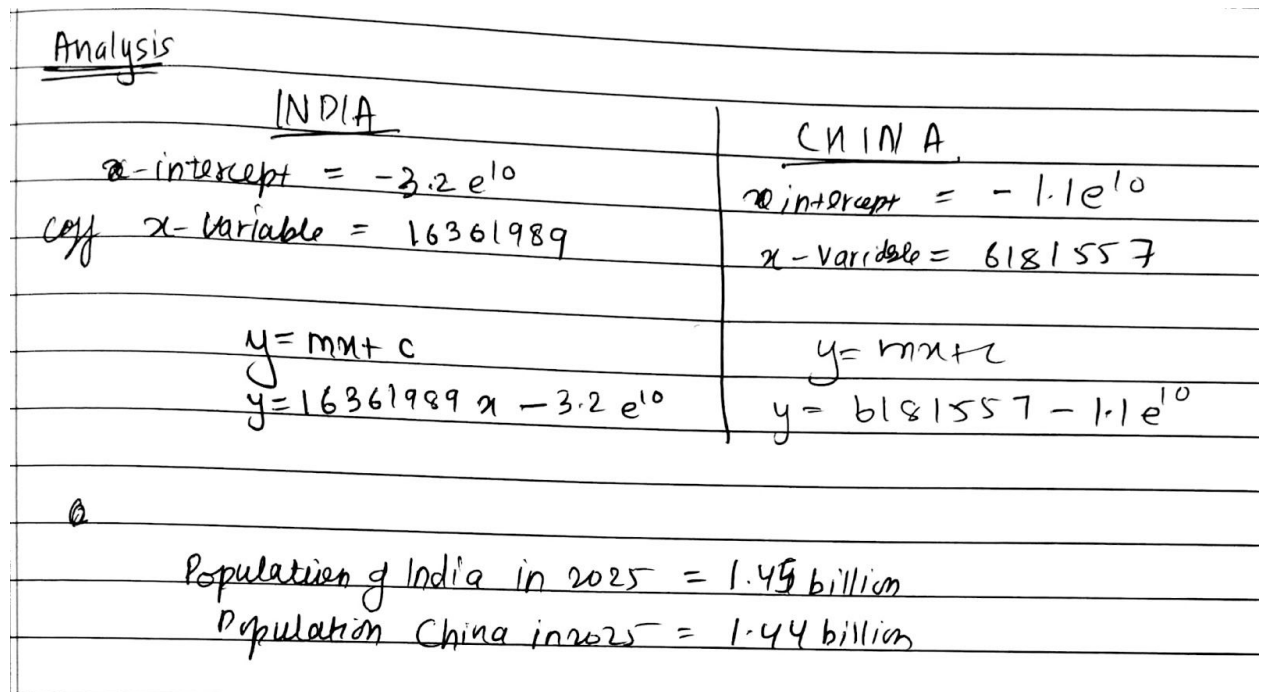 Analysis
INDIA
x-intercept = -3.2 e^10
coff x-variable = 16361989
y = mx + c
y = 16361989 x - 3.2 e^10
CHINA
x intercept = - 1.1e^10
x - variable = 6181557
y = mx + c
y = 6181557 - 1.1 e^10
Population of India in 2025 = 1.45 billion
Population China in 2025 = 1.44 billion